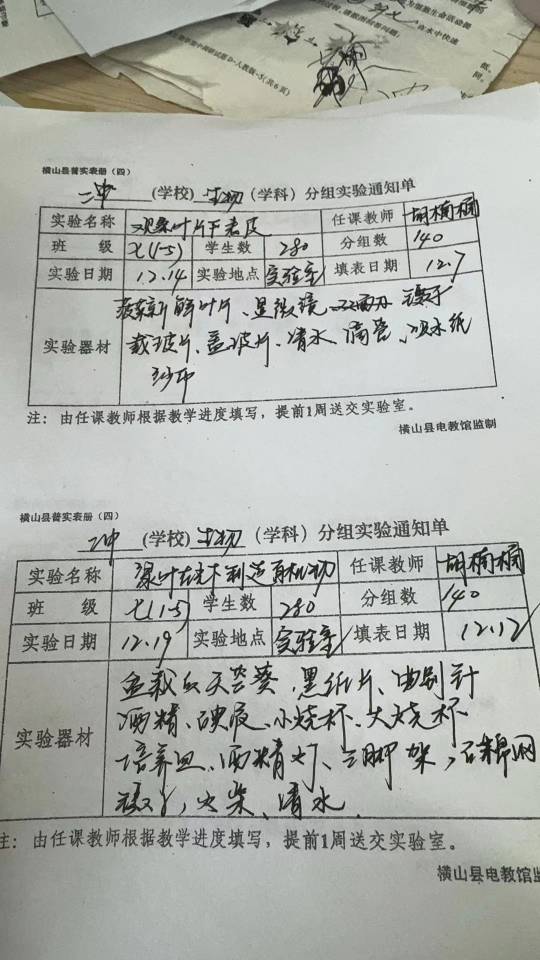 为细胞生命活动提
由水中快速
纸
同
人教版·5(共6页)
横山县普实表册（四）
二中 (学校) 生物 (学科) 分组实验通知单
实验名称 观察叶片下表皮 任课教师 胡楠楠
班 级 七(1-5) 学生数 280 分组数 140
实验日期 12.14 实验地点 实验室 填表日期 12.7
新鲜叶片、显微镜 双面刀 镊子
实验器材 载玻片、盖玻片、清水 滴管、吸水纸
纱布
注：由任课教师根据教学进度填写，提前1周送交实验室。
横山县电教馆监制
横山县普实表册（四）
二中 (学校) 生物 (学科) 分组实验通知单
实验名称 绿叶在光下制造有机物 任课教师 胡楠楠
班 级 七(1-5) 学生数 280 分组数 140
实验日期 12.19 实验地点 实验室 填表日期 12.12
盆栽的天竺葵、黑纸片、曲别针
酒精、碘液、小烧杯、大烧杯
实验器材 培养皿、酒精灯、三脚架，石棉网
镊子，火柴、清水
注：由任课教师根据教学进度填写，提前1周送交实验室。
横山县电教馆监